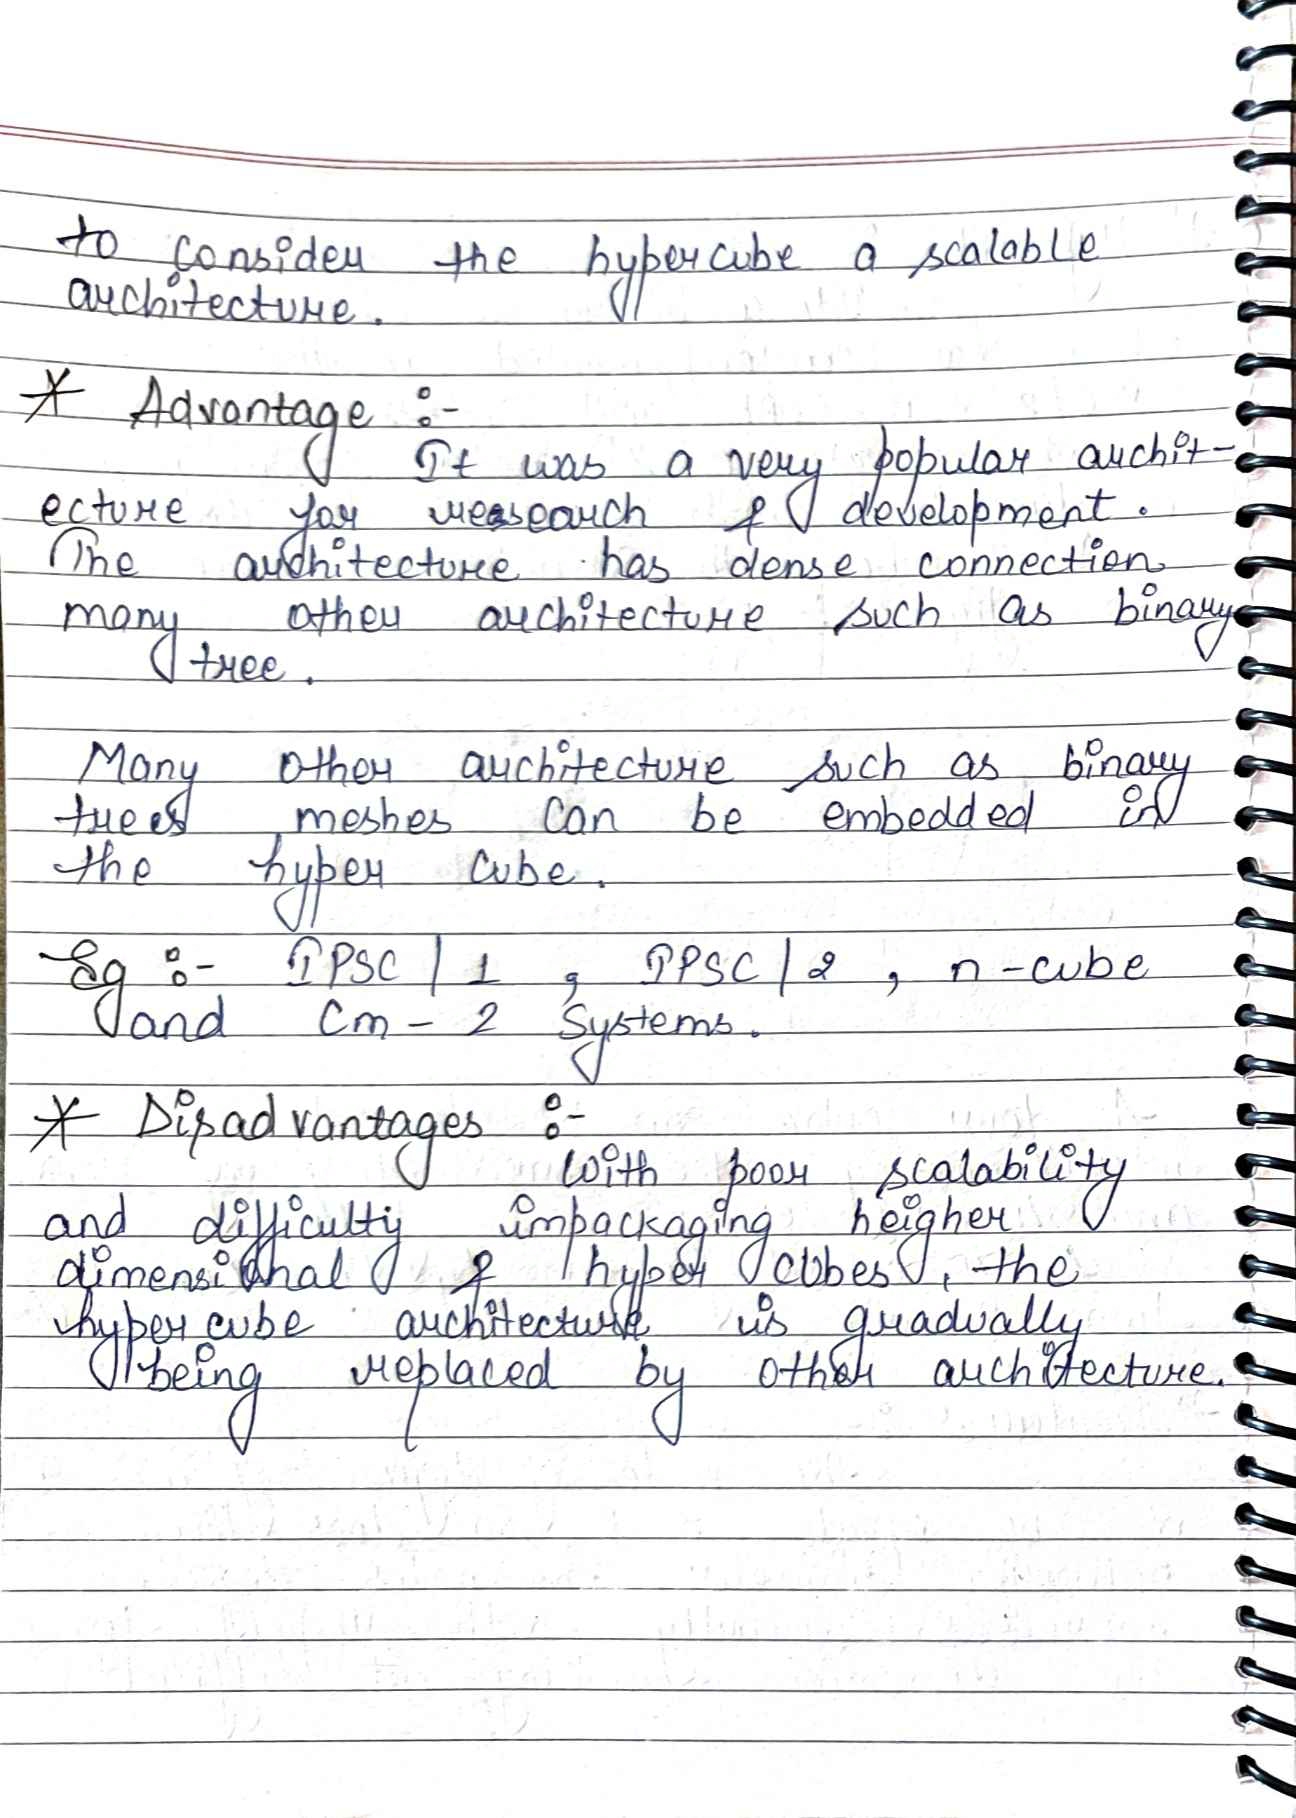 to consider the hypercube a scalable
architecture.
* Advantage :-
It was a very popular archit-
ecture for research & development.
The architecture has dense connection
many other architecture such as binary
tree.
Many other architecture such as binary
trees meshes can be embedded in
the hyper cube.
Eg :- IPSC / 1 , IPSC / 2 , n-cube
and Cm - 2 Systems.
* Disadvantages :-
With poor scalability
and difficulty impackaging heigher
dimensional & hyper cubes, the
hyper cube architecture is gradually
being replaced by other architecture.